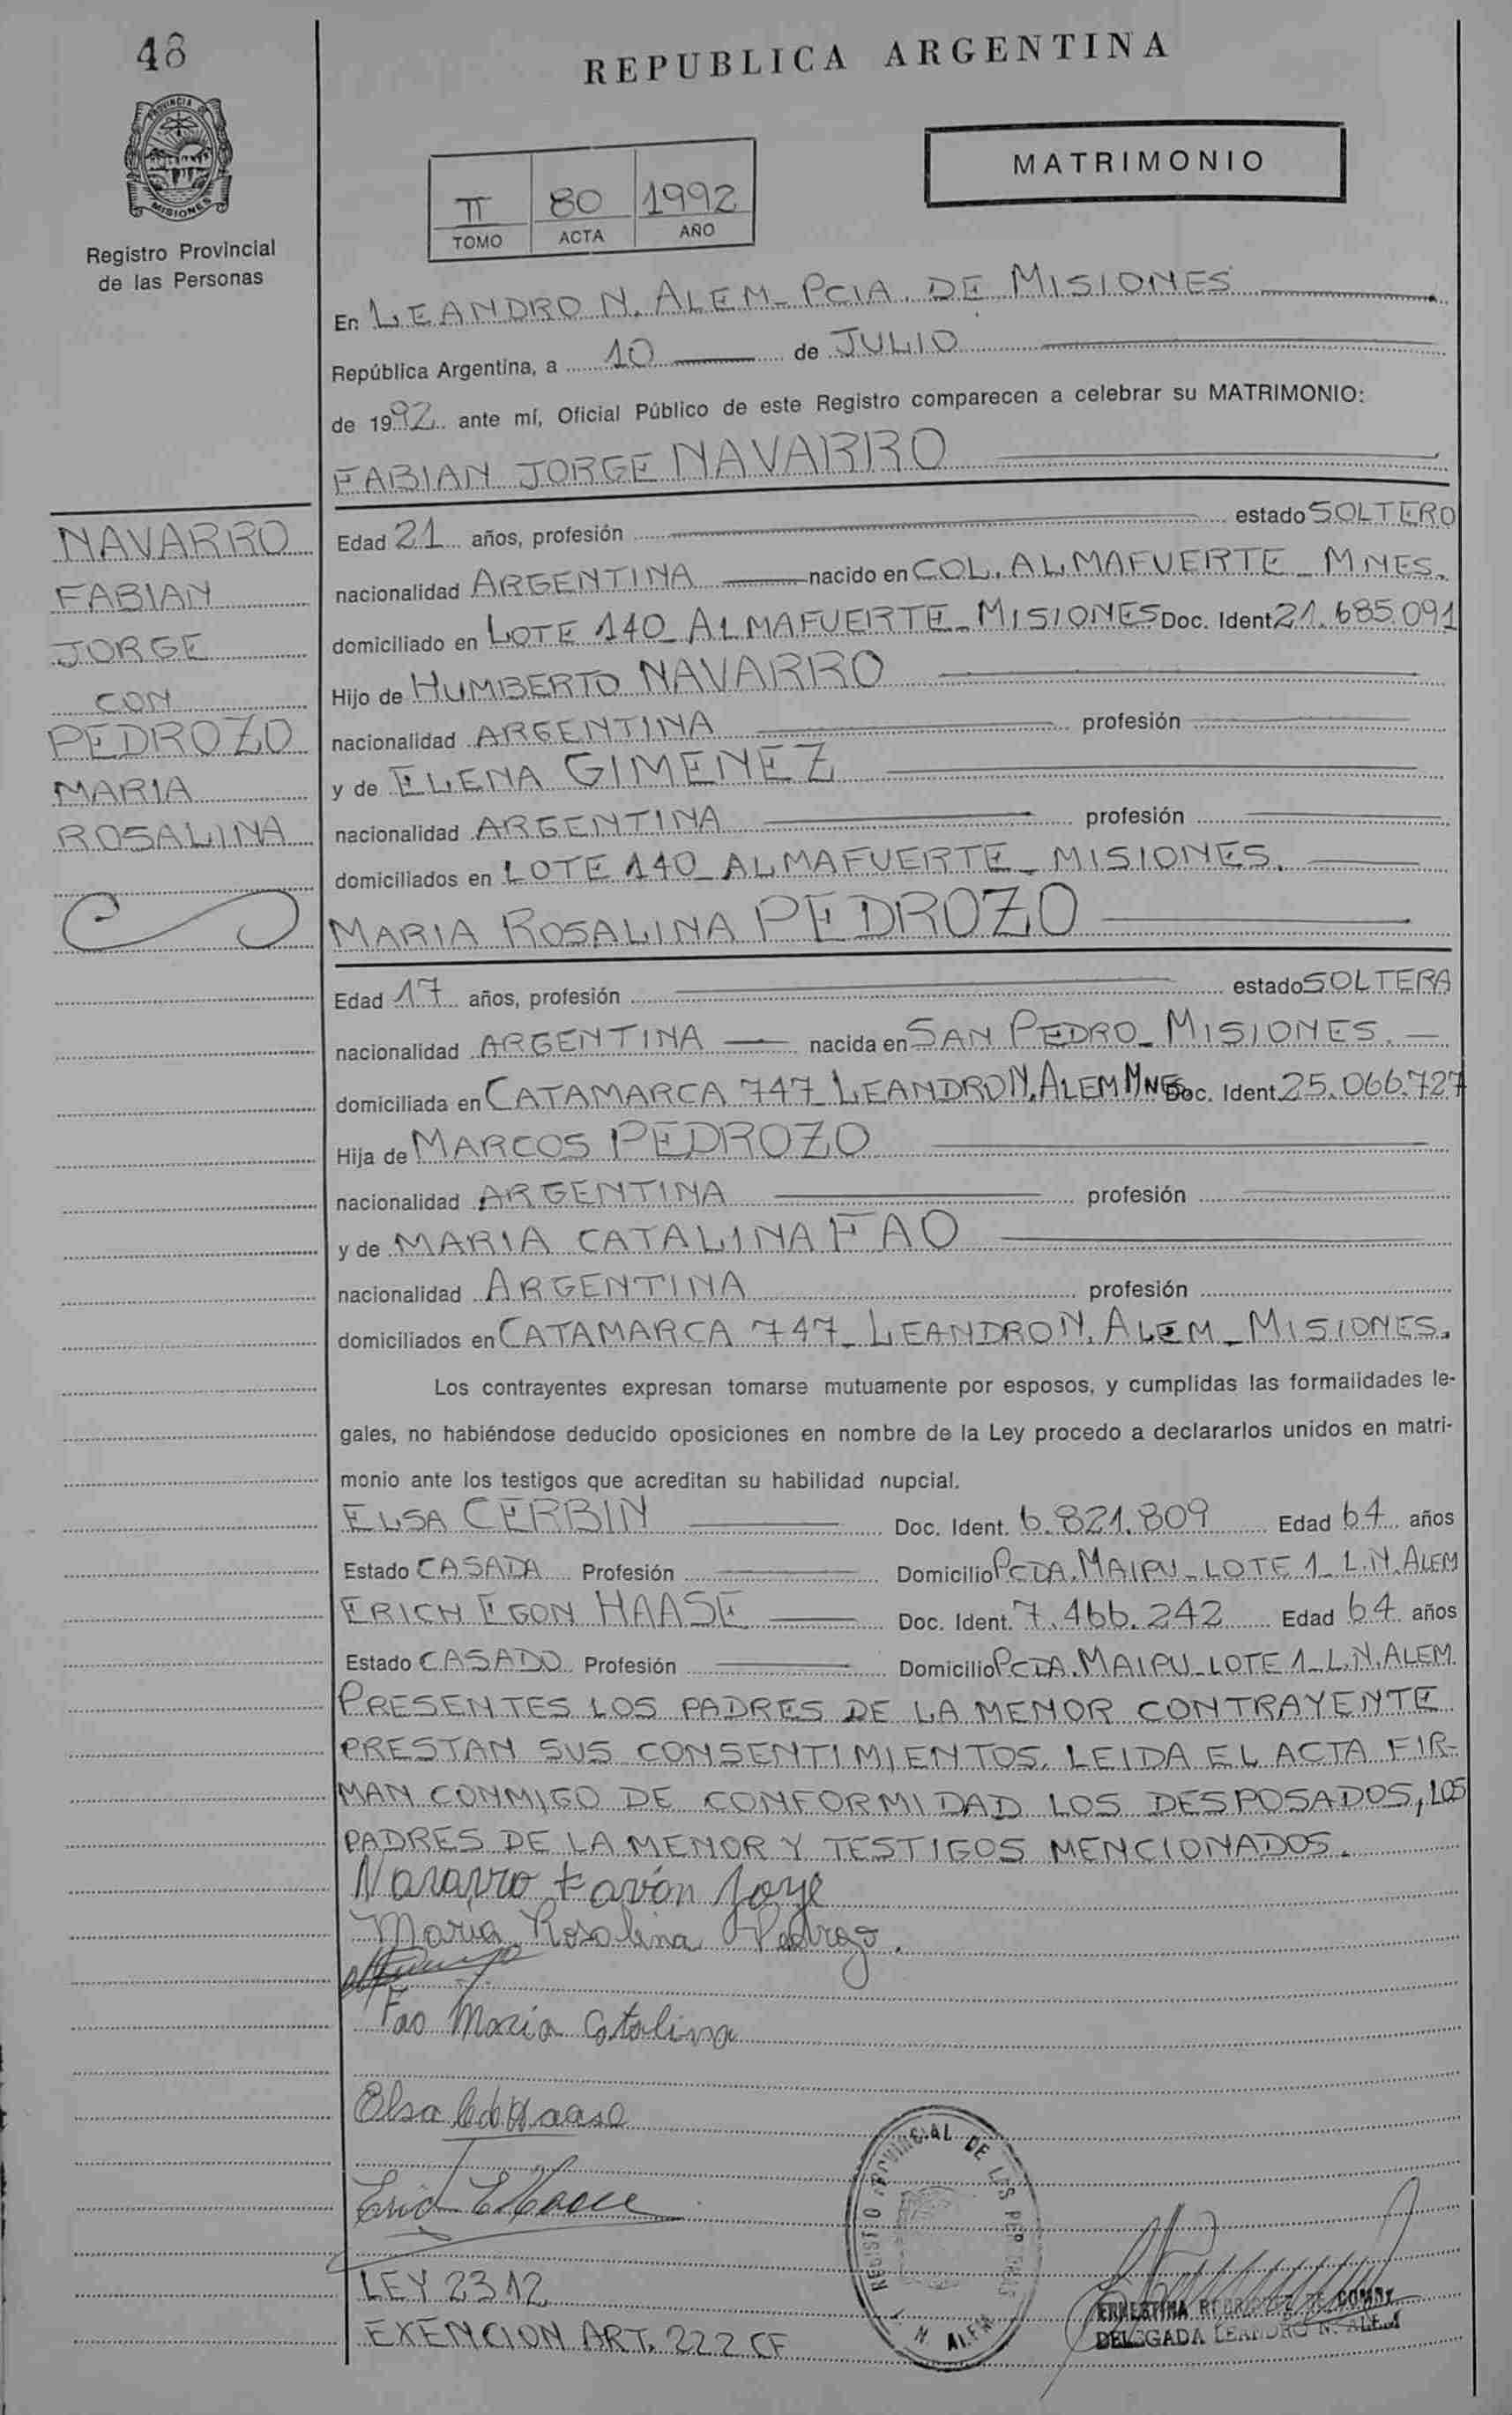 48
REPUBLICA ARGENTINA
PROVINCIA DE
MISIONES
MATRIMONIO
II 80 1992
TOMO ACTA AÑO
Registro Provincial
de las Personas
En LEANDRO N. ALEM - PCIA. DE MISIONES
República Argentina, a 10 de JULIO
de 1992 ante mí, Oficial Público de este Registro comparecen a celebrar su MATRIMONIO:
FABIAN JORGE NAVARRO
NAVARRO
FABIAN
JORGE
CON
PEDROZO
MARIA
ROSALINA
Edad 21 años, profesión estado SOLTERO
nacionalidad ARGENTINA nacido en COL. ALMAFUERTE - MNES.
domiciliado en LOTE 140 - ALMAFUERTE - MISIONES Doc. Ident. 21.685.091
Hijo de HUMBERTO NAVARRO
nacionalidad ARGENTINA profesión
y de ELENA GIMENEZ
nacionalidad ARGENTINA profesión
domiciliados en LOTE 140 - ALMAFUERTE - MISIONES.
MARIA ROSALINA PEDROZO
Edad 17 años, profesión estado SOLTERA
nacionalidad ARGENTINA nacida en SAN PEDRO - MISIONES.
domiciliada en CATAMARCA 747 - LEANDRO N. ALEM MNES. Doc. Ident. 25.066.727
Hija de MARCOS PEDROZO
nacionalidad ARGENTINA profesión
y de MARIA CATALINA FAO
nacionalidad ARGENTINA profesión
domiciliados en CATAMARCA 747 - LEANDRO N. ALEM - MISIONES.
Los contrayentes expresan tomarse mutuamente por esposos, y cumplidas las formalidades le-
gales, no habiéndose deducido oposiciones en nombre de la Ley procedo a declararlos unidos en matri-
monio ante los testigos que acreditan su habilidad nupcial.
ELSA CERBIN Doc. Ident. 6.821.809 Edad 64 años
Estado CASADA Profesión Domicilio PCDA. MAIPU - LOTE 1 - L.N. ALEM
ERICH EGON HAASE Doc. Ident. 7.466.242 Edad 64 años
Estado CASADO Profesión Domicilio PCDA. MAIPU - LOTE 1 - L.N. ALEM.
PRESENTES LOS PADRES DE LA MENOR CONTRAYENTE
PRESTAN SUS CONSENTIMIENTOS. LEIDA EL ACTA FIR-
MAN CONMIGO DE CONFORMIDAD LOS DESPOSADOS, LOS
PADRES DE LA MENOR Y TESTIGOS MENCIONADOS.
Navarro Favón Jorje
Maria Rosalina Pedrozo.
Fao Maria Catalina
Elsa C de Haase
Erich E Haase
REGISTRO PROVINCIAL DE LAS PERSONAS
L. N. ALEM
LEY 2312
EXENCION ART. 222 CF
ERNESTINA RODRIGUEZ DE
DELEGADA LEANDRO N. ALEM